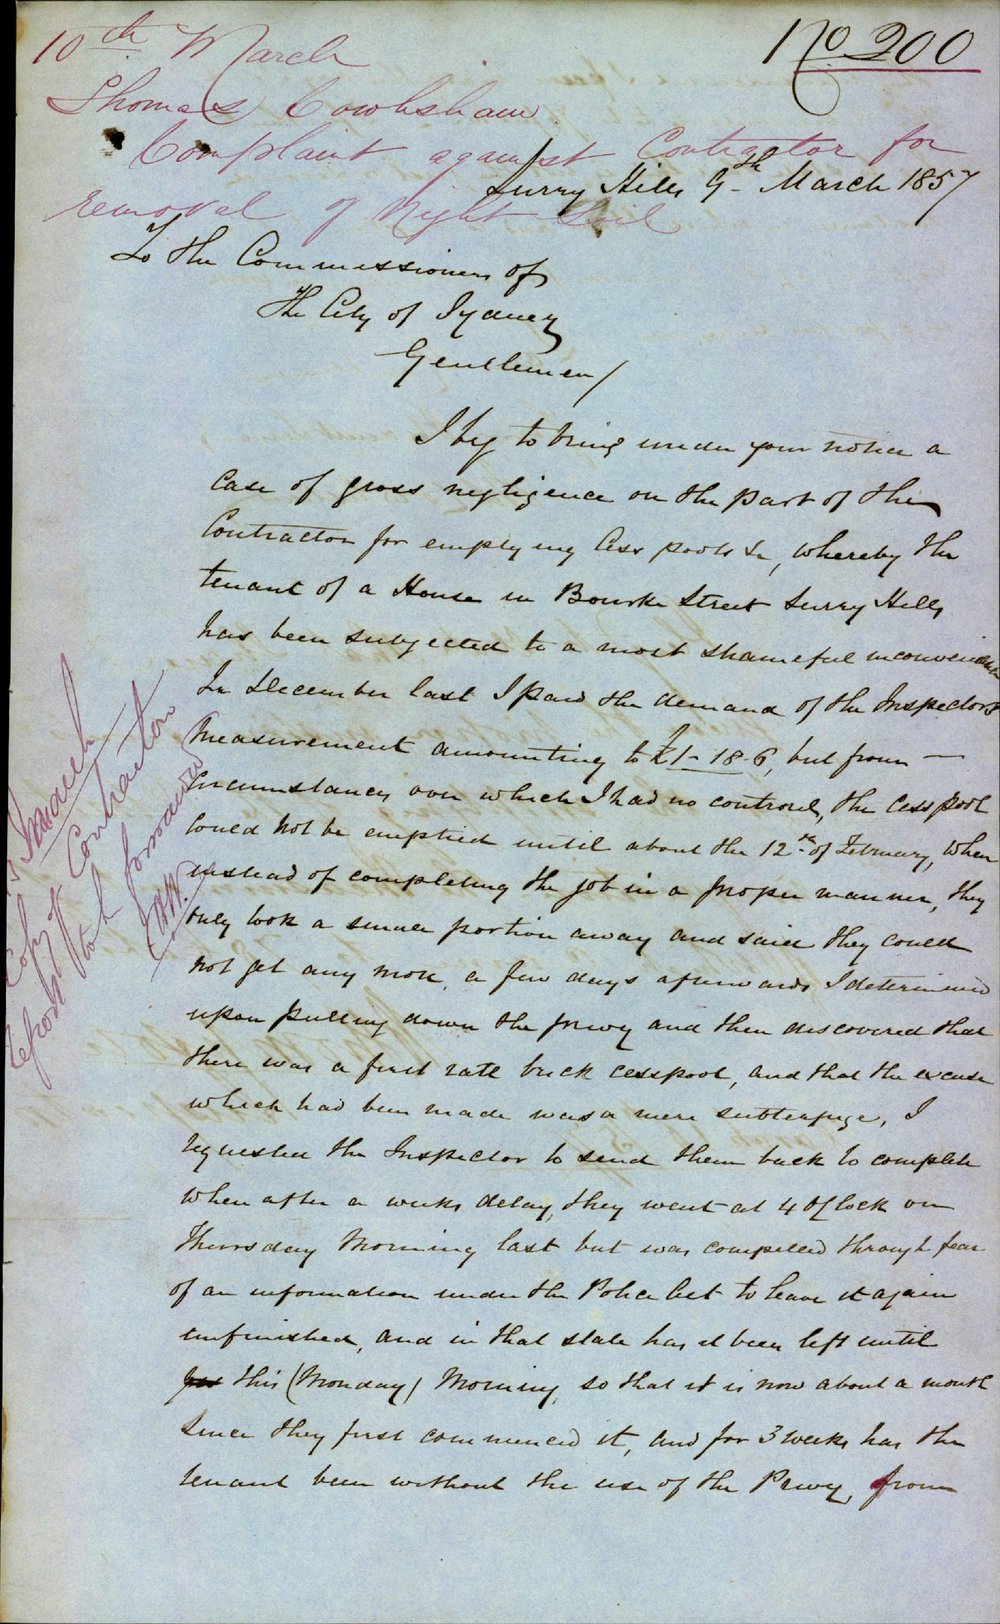 No 200
10th March
Thomas Cowlishaw
Complaint against Contractor for
removal of Night Soil
Surry Hills 9th March 1857
To the Commissioners of
The City of Sydney
Gentlemen/
I beg to bring under your notice a
case of gross negligence on the part of the
Contractor for emptying Cess pools &c, whereby the
tenant of a House in Bourke Street Surry Hills
has been subjected to a most shameful inconvenience
In December last I paid the demand of the Inspectors
Measurement amounting to £1-18-6, but from
circumstances over which I had no controul, the Cess pool
could not be emptied until about the 12th of February, when
instead of completing the job in a proper manner, they
only took a small portion away and said they could
not get any more, a few days afterwards I determined
upon pulling down the privy and then discovered that
there was a first rate brick cesspool, and that the excuse
which had been made was a mere subterfuge, I
requested the Inspector to send them back to complete
when after a weeks delay, they went at 4 O'Clock on
Thursday Morning last but was compelled through fear
of an information under the Police Act to leave it again
unfinished, and in that state has it been left until
this (Monday) Morning, so that it is now about a month
since they first commenced it, and for 3 weeks has the
tenant been without the use of the Privy, from
13 March
Copy of Contractors
report forwarded